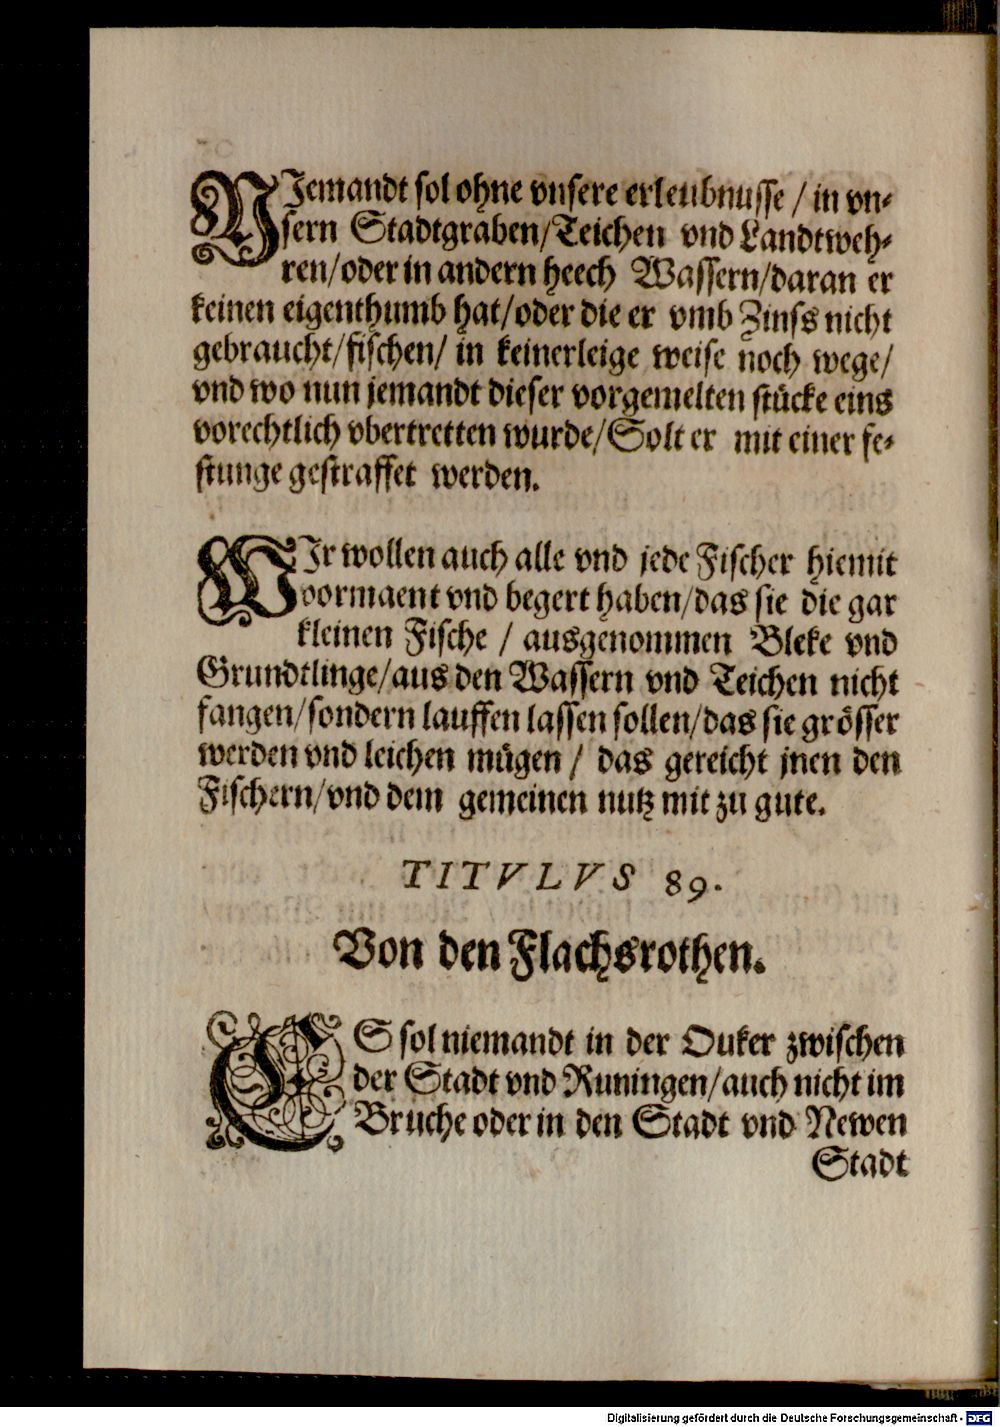 NJemandt sol ohne vnsere erleubnusse / in vn-
sern Stadtgraben/Teichen vnd Landtweh-
ren/oder in andern heech Wassern/daran er
keinen eigenthumb hat/oder die er vmb Zinss nicht
gebraucht/fischen/ in keinerleige weise noch wege/
vnd wo nun jemandt dieser vorgemelten stücke eins
vorechtlich vbertretten wurde/Solt er mit einer fe-
stunge gestraffet werden.
WJr wollen auch alle vnd jede Fischer hiemit
vormaent vnd begert haben/das sie die gar
kleinen Fische / ausgenommen Bleke vnd
Grundtlinge/aus den Wassern vnd Teichen nicht
fangen/sondern lauffen lassen sollen/das sie grösser
werden vnd leichen mügen / das gereicht jnen den
Fischern/vnd dem gemeinen nutz mit zu gute.
TITVLVS 89.
Von den Flachsrothen.
ES sol niemandt in der Ouker zwischen
der Stadt vnd Runingen/auch nicht im
Bruche oder in den Stadt vnd Newen
Stadt
Digitalisierung gefördert durch die Deutsche Forschungsgemeinschaft - DFG